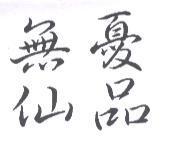 無憂
仙品